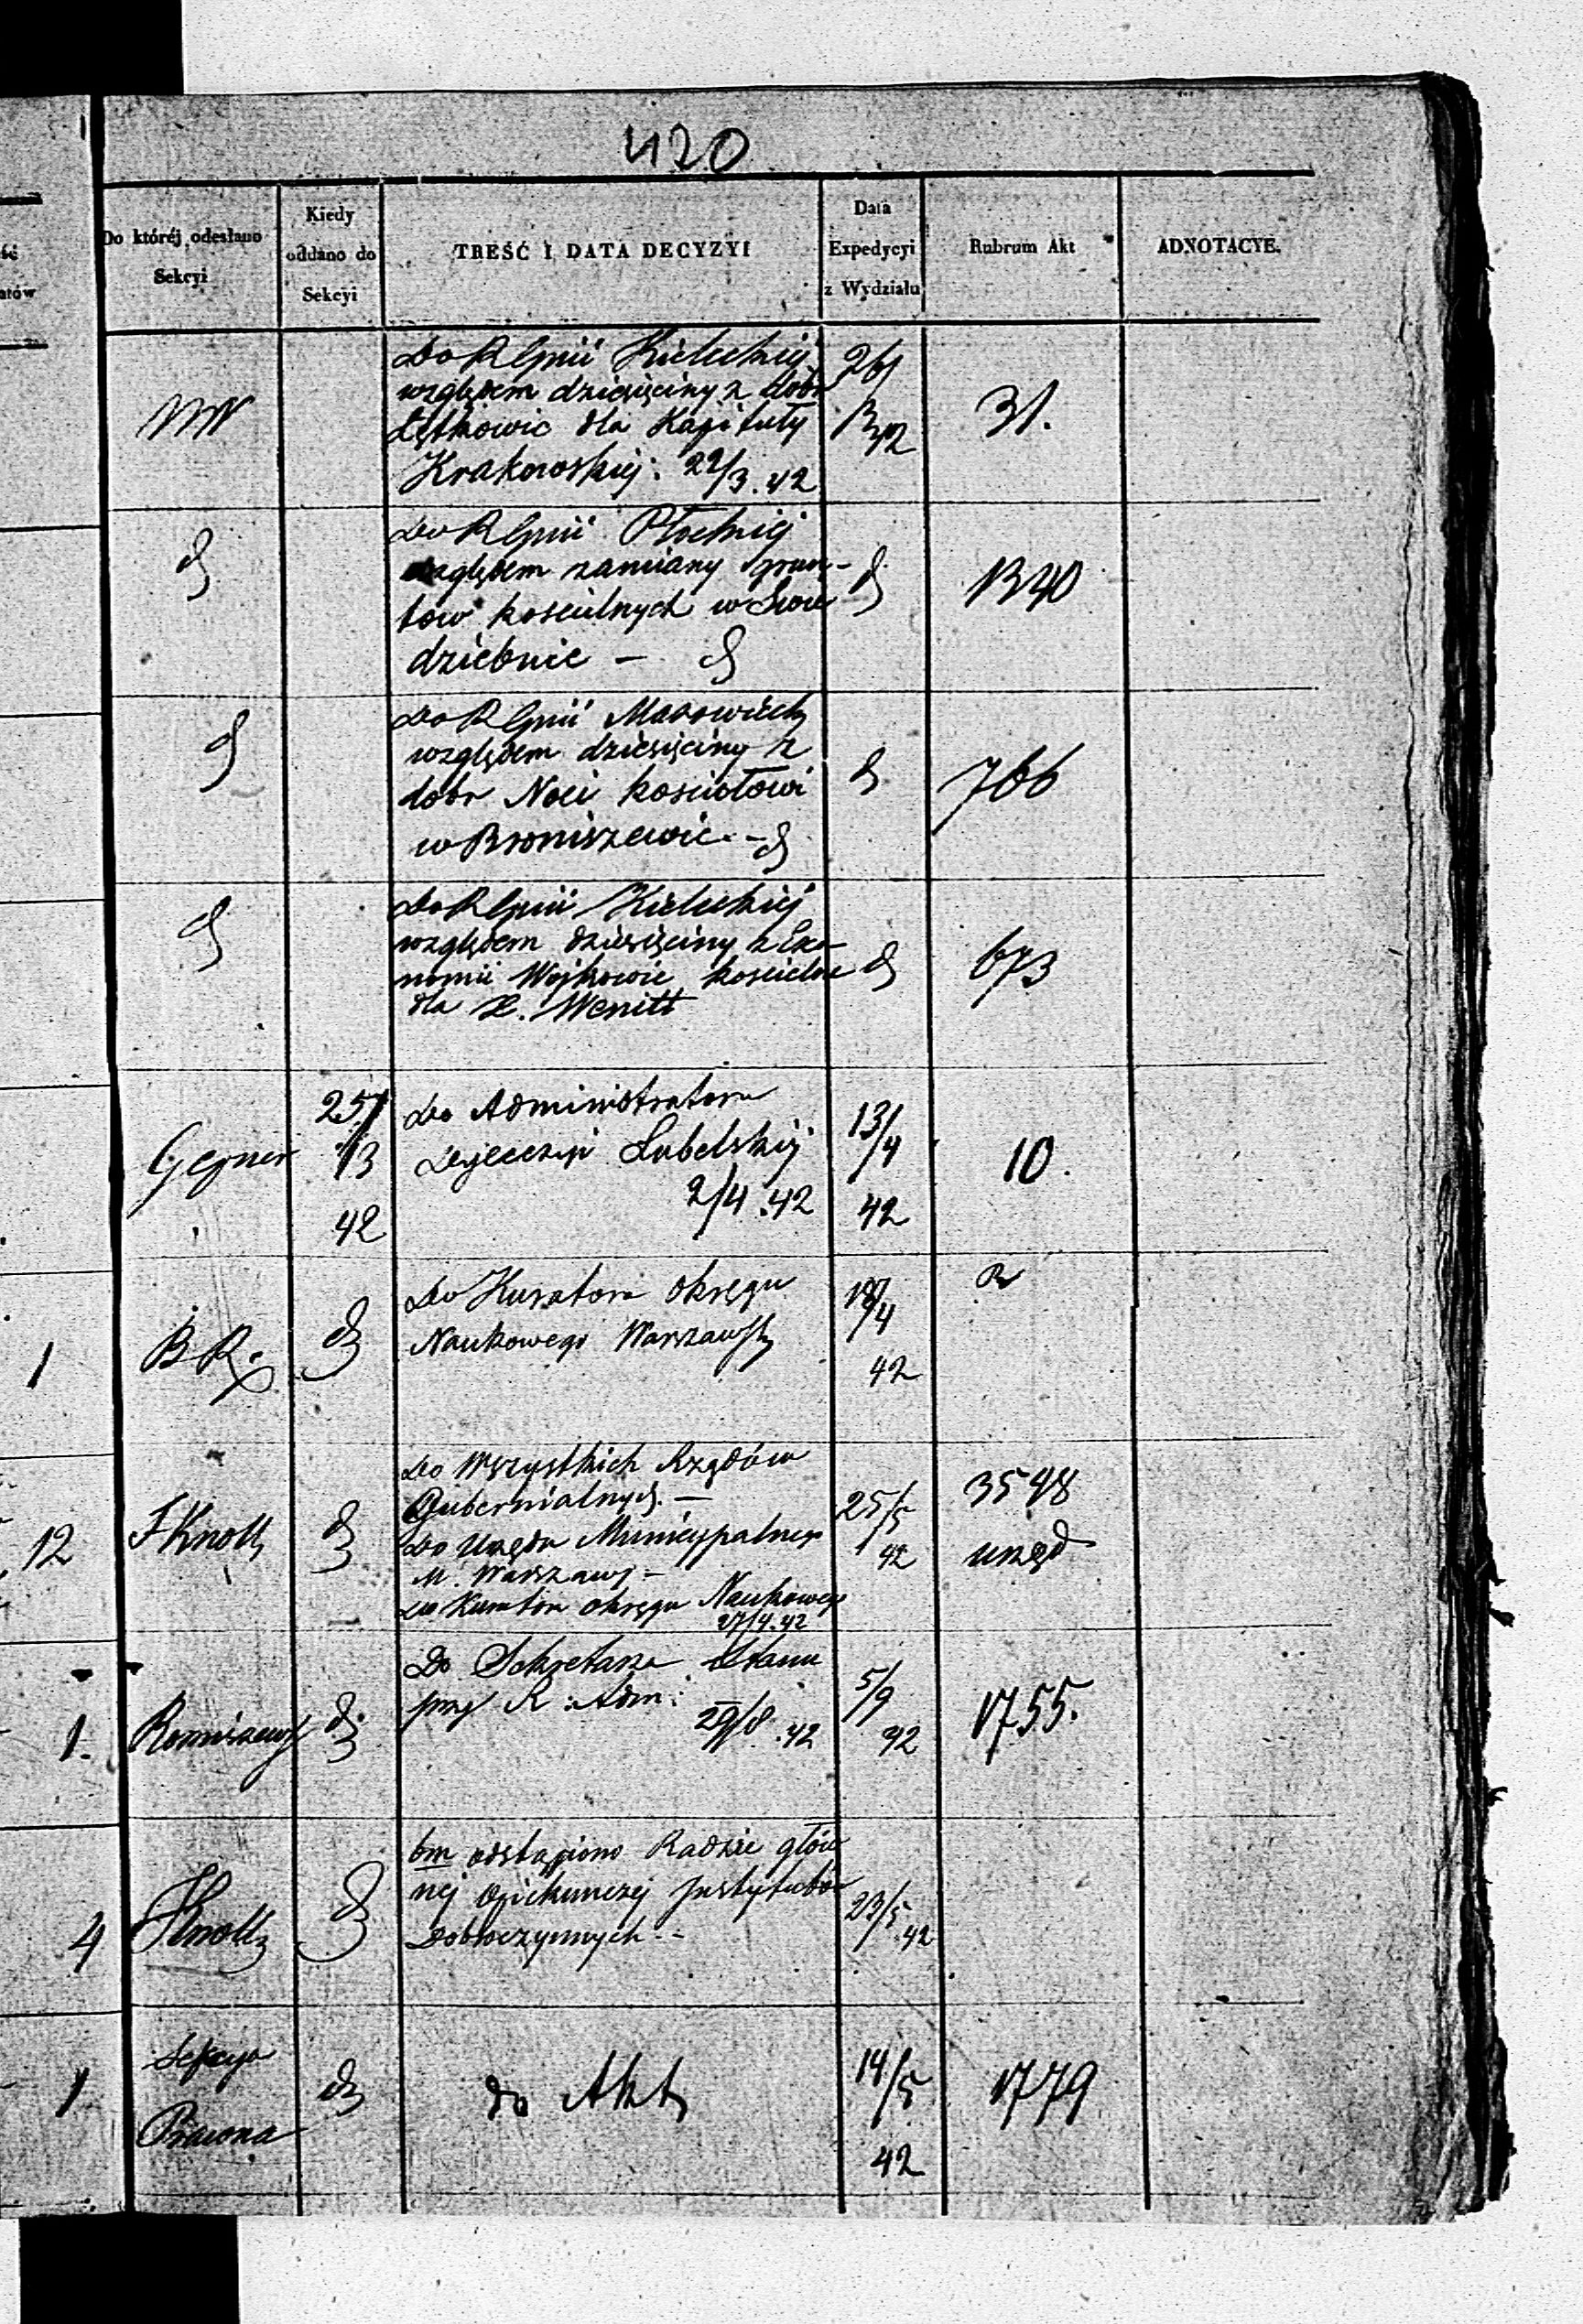 420
ść
atów
Do któréj odesłano
Sekcyi
Kiedy
oddano do
Sekcyi
TREŚĆ I DATA DECYZYI
Data
Expedycyi
z Wydziału
Rubrum Akt
ADNOTACYE.
Do R Gnii Kieleckiej
względem dziesięciny z dóbr
Łętkowic dla Kapituły
Krakowskiej: 22/3.42
26/
3/42
31.
Do R Gnii Płockiej
względem zamiany grun-
tów kościelnych w Świe
dziebnie —
1340
Do R Gnii Mazowieck
względem dziesięciny z
dobr Kościołowi
w Broniszewie. -
766
Do R Gnii Kieleckiej
względem dziesięciny z Eko-
nomii Wojkowic kościelne
dla X.
673
Gepner
25/
/3
42
Do Administratora
Dyecezyi Lubelskiej
2/4.42
13/
/4
42
10.
1
B R.
Do Kuratora Okręgu
Naukowego Warszawsk
/4
42
12
J Knoll
Do Wszystkich Rządów
Gubernialnych. —
Do Urzędu Municypalnego
M. Warszawy -
Do Kuratora okręgu Naukowego
27/4.42
25/5
42
3548
urzęd
1.
Do Sekretarza Stanu
przy R: Adm:
29/8.42
5/9
42
1755.
4
Knoll
bm odstąpiono Radzie głów
nej Opiekunczej Instytutów
Dobroczynnych. -
23/5
42
1
Sekcya
Prawna
do Akt
14/5
42
1779